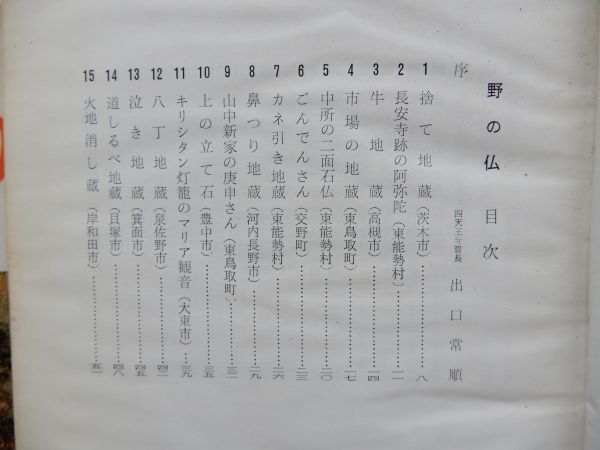 野の仏 目次
序 四天王寺管長 出口常順
1 捨て地蔵(茨木市)…………八
2 長安寺跡の阿弥陀(東能勢村)…………一一
3 牛地蔵(高槻市)…………一四
4 市場の地蔵(東鳥取町)…………一七
5 中所の二面石仏(東能勢村)…………二〇
6 ごんでんさん(交野町)…………二三
7 カネ引き地蔵(東能勢村)…………二六
8 鼻つり地蔵(河内長野市)…………二九
9 山中新家の庚申さん(東鳥取町)…………三二
10 上の立て石(豊中市)…………三五
11 キリシタン灯籠のマリア観音(大東市)…………三九
12 八丁地蔵(泉佐野市)…………四二
13 泣き地蔵(箕面市)…………四五
14 道しるべ地蔵(貝塚市)…………四八
15 火地消し蔵(岸和田市)…………五一